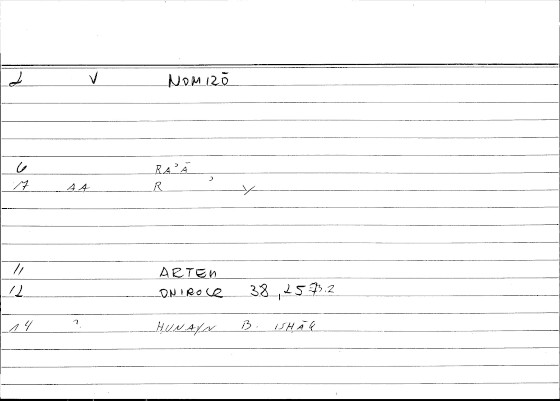 2 V NOMIZŌ
6 RAʾĀ
17 AA R ʾ Y
11 ARTEM
12 ONIROCR 38,
14 HUNAYN B. ISHĀQ